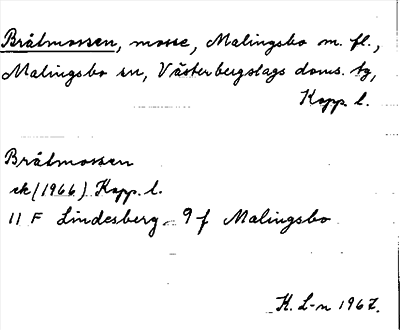 Bråtmossen, mosse, Malingsbo m. fl.,
Malingsbo sn, Västerbergslags doms. tg,
Kopp. l.
Bråtmossen
ek (1966) Kopp. l.
11 F Lindesberg 9 f Malingsbo
K. L-n 1967.